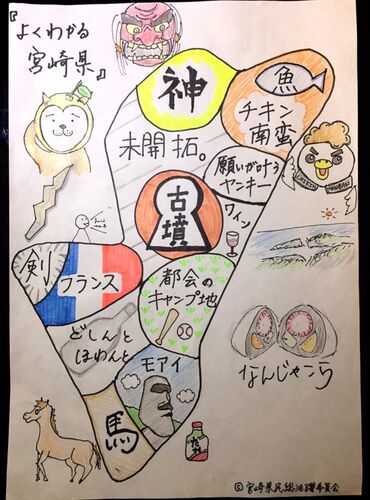 『よくわかる
宮崎県』
神
魚
チキン
南蛮
未開拓。
願いが叶う
ヤンキー
CHICKEN
NANBAN
古墳
ワイン
剣
フランス
都会の
キャンプ地
どしんと
ほわんと
モアイ
なんじゃこら
馬